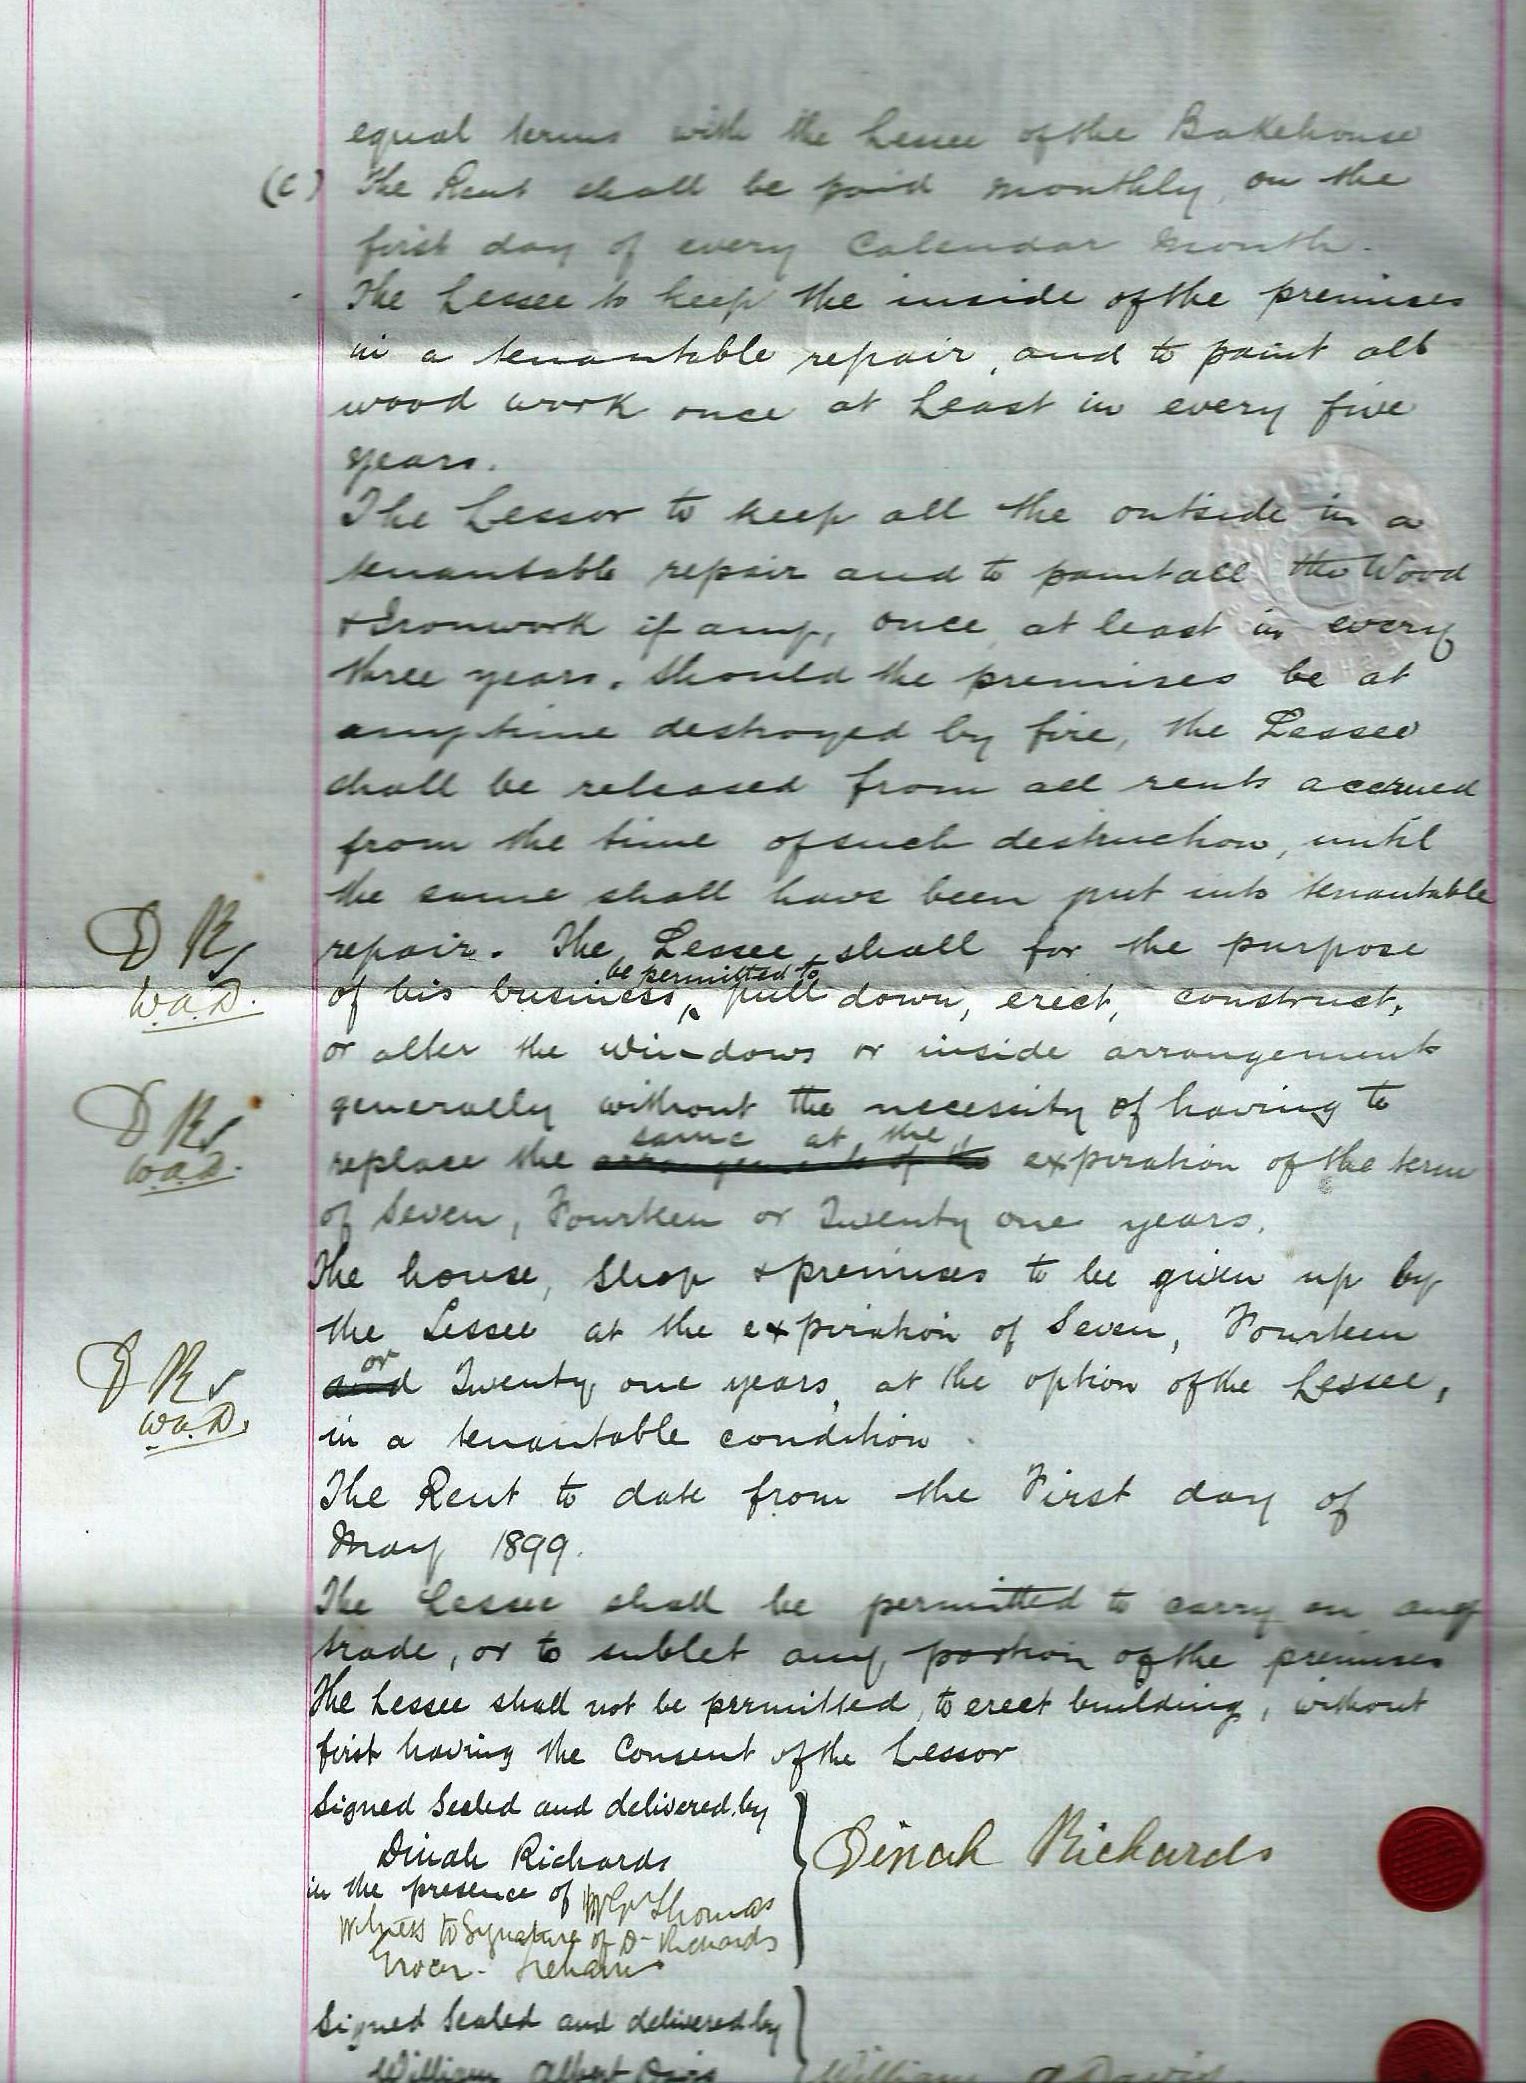 equal terms with the Lessee of the Bakehouse
(C) The Rent shall be paid monthly, on the
first day of every Calendar Month.
The Lessee to keep the inside of the premises
in a tenantable repair, and to paint all
wood work once at Least in every five
years.
The Lessor to keep all the outside in a
tenantable repair and to paint all the Wood
& Ironwork if any, once at least in every
three years. Should the premises be at
anytime destroyed by fire, the Lessee
shall be released from all rents accrued
from the time of such destruction, until
the same shall have been put into tenantable
D Rs
repair. The Lessee shall for the purpose
be permitted to
W.A.D.
of his business, pull down, erect, construct,
or alter the windows or inside arrangement
D Rs
generally without the necessity of having to
same at the
W.A.D.
replace the arrangements of the expiration of the term
of Seven, Fourteen or Twenty one years.
The house, Shop & premises to be given up by
the Lessee at the expiration of Seven, Fourteen
or
D Rs
and Twenty one years, at the option of the Lessee,
W.A.D.
in a tenantable condition.
The Rent to date from the First day of
May 1899.
The Lessee shall be permitted to carry on any
trade, or to sublet any portion of the premises
The Lessee shall not be permitted, to erect building, without
first having the Consent of the Lessor
Signed Sealed and delivered by
Dinah Richards
Dinah Richards
in the presence of Thomas
Witness to Signature of D. Richards
Grocer.
Signed Sealed and delivered by
William Albert Davis
William A Davis